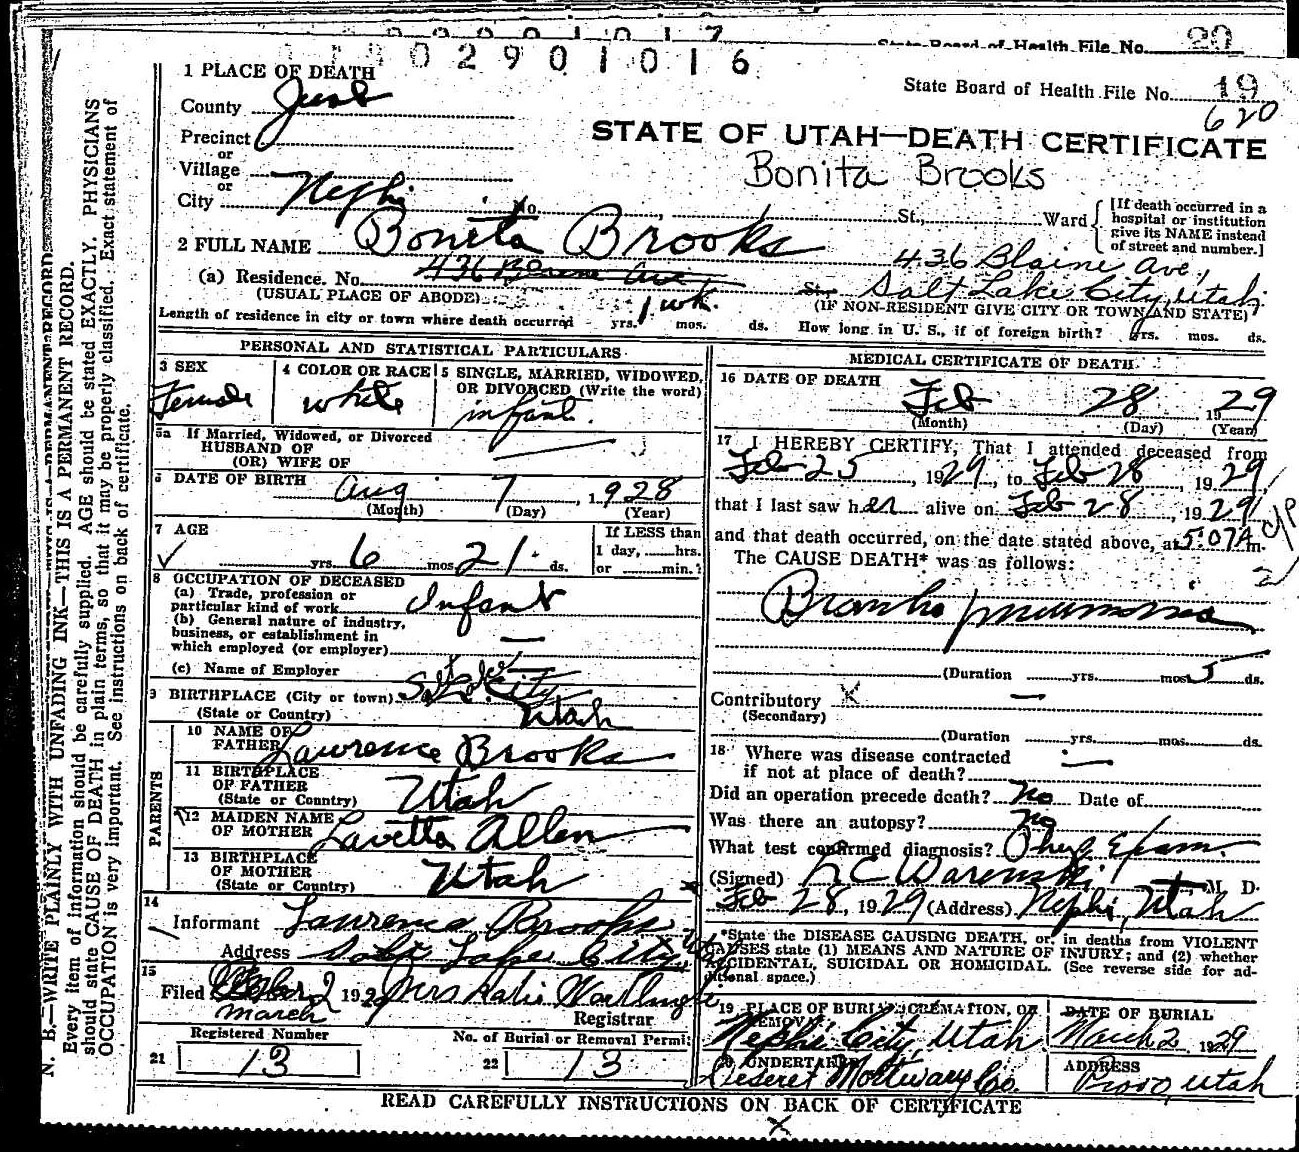 State Board of Health File No. 20
0 2 9 0 1 0 1 6
State Board of Health File No. 19
620
1 PLACE OF DEATH
County Juab
STATE OF UTAH—DEATH CERTIFICATE
Precinct
or
Village
or
City Nephi No. St. Ward
Bonita Brooks
[If death occurred in a hospital or institution give its NAME instead of street and number.]
2 FULL NAME Bonita Brooks
436 Blaine Ave,
(a) Residence. No. 436 Ave St. Salt Lake City, Utah.
(USUAL PLACE OF ABODE) (IF NON-RESIDENT GIVE CITY OR TOWN AND STATE)
Length of residence in city or town where death occurred yrs. mos. ds. 1 wk. How long in U. S., if of foreign birth? yrs. mos. ds.
PERSONAL AND STATISTICAL PARTICULARS
3 SEX
Female
4 COLOR OR RACE
white
5 SINGLE, MARRIED, WIDOWED, OR DIVORCED (Write the word)
infant
5a If Married, Widowed, or Divorced
HUSBAND OF
(OR) WIFE OF
6 DATE OF BIRTH Aug 7, 1928
(Month) (Day) (Year)
7 AGE
yrs. 6 mos. 21 ds.
If LESS than
1 day, hrs.
or min.?
8 OCCUPATION OF DECEASED
(a) Trade, profession or particular kind of work Infant
(b) General nature of industry, business, or establishment in which employed (or employer) —
(c) Name of Employer
9 BIRTHPLACE (City or town) Salt Lake City
(State or Country) Utah
PARENTS
10 NAME OF FATHER Lawrence Brooks
11 BIRTHPLACE OF FATHER
(State or Country) Utah
12 MAIDEN NAME OF MOTHER Lavetta Allen
13 BIRTHPLACE OF MOTHER
(State or Country) Utah
14
Informant Lawrence Brooks
Address Salt Lake City, Ut
15
Filed March 2 1929 Mrs Katie
Registrar
Registered Number
21 13
No. of Burial or Removal Permit
22 13
MEDICAL CERTIFICATE OF DEATH
16 DATE OF DEATH
Feb 28 1929
(Month) (Day) (Year)
17 I HEREBY CERTIFY, That I attended deceased from
Feb 25, 1929, to Feb 28, 1929,
that I last saw her alive on Feb 28, 1929,
and that death occurred, on the date stated above, at 5:07A m.
The CAUSE DEATH* was as follows:
Broncho pneumonia
(Duration yrs. mos. 5 ds.
Contributory X —
(Secondary)
(Duration yrs. mos. ds.
18 Where was disease contracted
if not at place of death? —
Did an operation precede death? No Date of
Was there an autopsy? No
What test confirmed diagnosis? Phys Exam.
(Signed) M. D.
Feb 28, 1929 (Address) Nephi, Utah
*State the DISEASE CAUSING DEATH, or, in deaths from VIOLENT
CAUSES state (1) MEANS AND NATURE OF INJURY; and (2) whether
ACCIDENTAL, SUICIDAL OR HOMICIDAL. (See reverse side for ad-
ditional space.)
19 PLACE OF BURIAL, CREMATION, OR REMOVAL
Nephi City, Utah
DATE OF BURIAL
March 2 1929
20 UNDERTAKER
Deseret Mortuary Co.
ADDRESS
Provo, Utah
READ CAREFULLY INSTRUCTIONS ON BACK OF CERTIFICATE
X
N. B.—WRITE PLAINLY WITH UNFADING INK—THIS IS A PERMANENT RECORD.
Every item of information should be carefully supplied. AGE should be stated EXACTLY. PHYSICIANS
should state CAUSE OF DEATH in plain terms, so that it may be properly classified. Exact statement of
OCCUPATION is very important. See instructions on back of certificate.